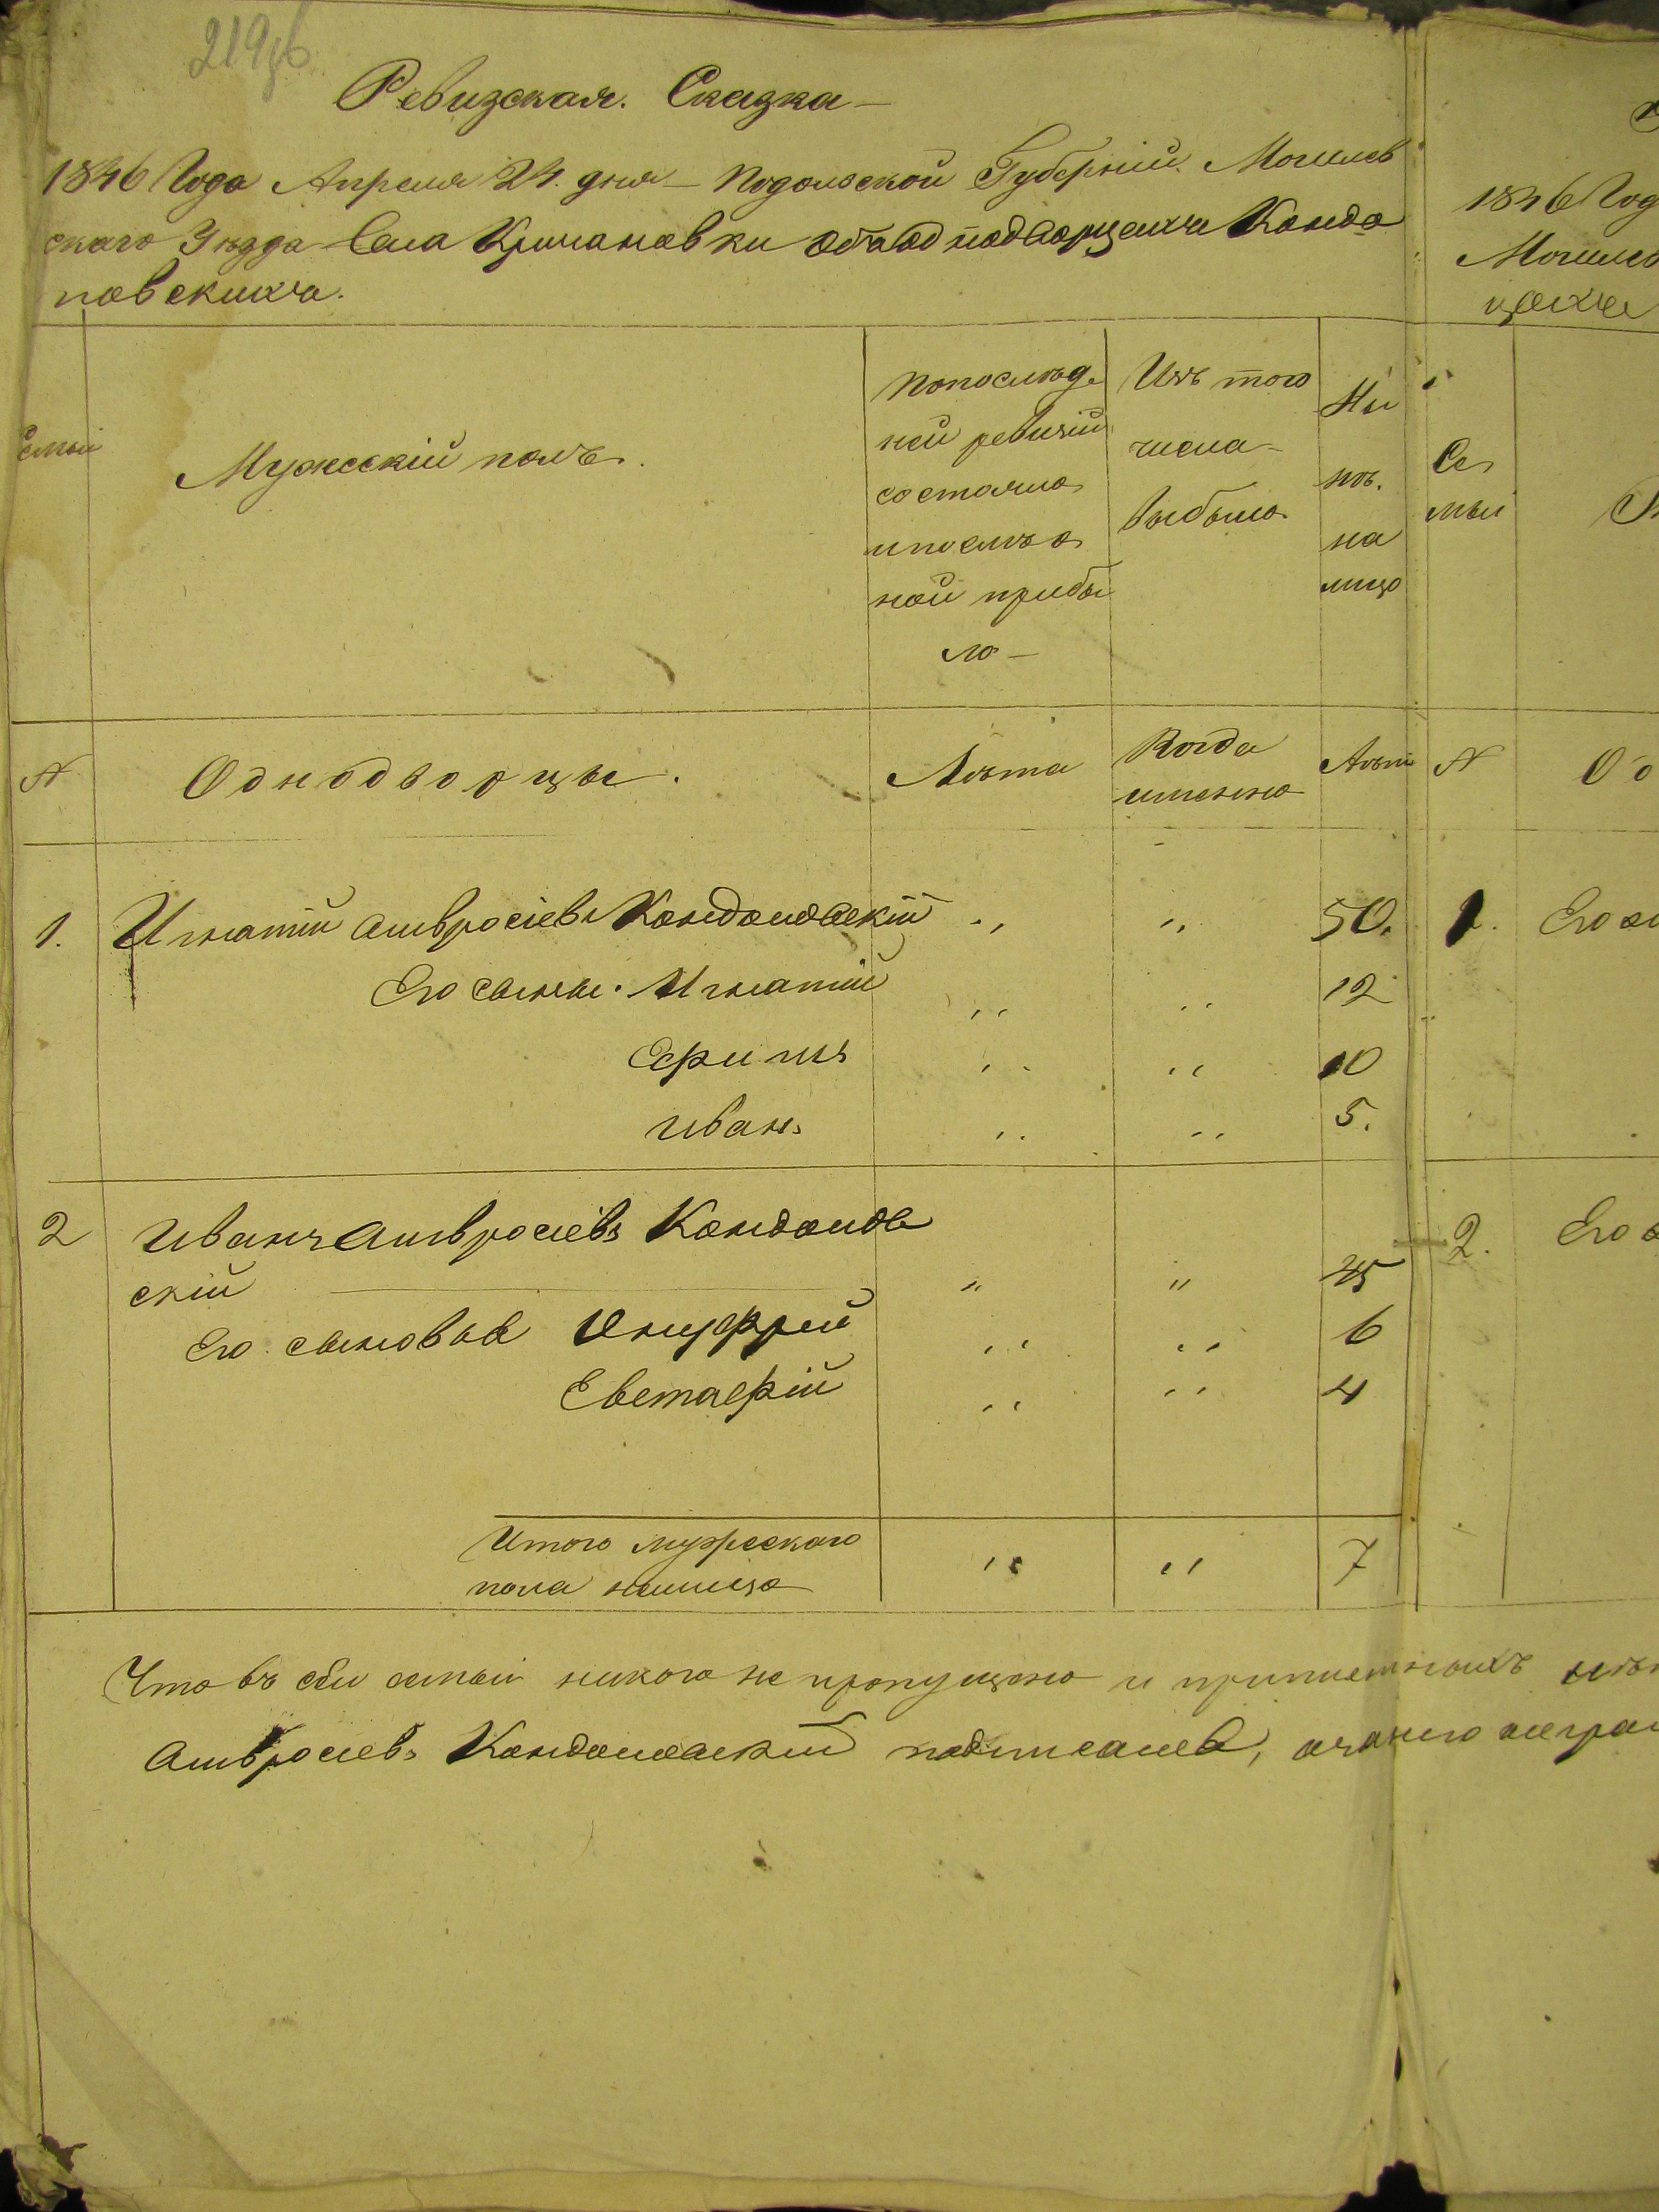 219
Ревизская. Сказка
1846 Года Апреля 24. дня – Подольской Губерніи. Могилев
скаго Уезда Села Кричановки объ однодворцахъ
Мужескій полъ.
Попослед
ней ревизіи
состояло
ипослѣ о
ной прибы
ло –
Изъ того
числа –
выбыло
Ны
нѣ.
на
лицо
Семьи
№
Однодворцы.
Лѣта
Когда
именно
Лѣта
1. Игнатій Амвросіевъ
50.
Его сыны. Игнатій
12
10
Иванъ
5.
2 Иванъ Амвросіевъ
скій
45
Его сыновья Онуфрій
6
Евстафій
4
Итого мужескаго
пола налицо
7
Что въ сей семьи никого не пропущено и
Амвросіевъ
1846 Год
Могилев
Се
мьи
№
Од
1. Его
2. Его